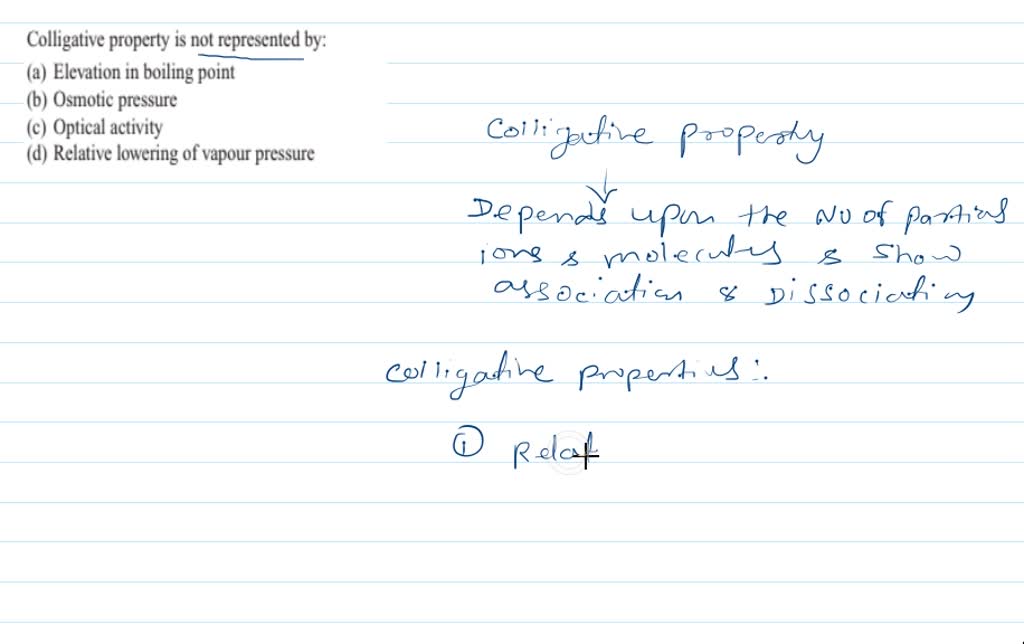 Colligative property is not represented by:
(a) Elevation in boiling point
(b) Osmotic pressure
(c) Optical activity
(d) Relative lowering of vapour pressure
Colligative property
Depends upon the No of particls
ions & molecules & show
association & Dissociation
Colligative properties :.
① Relat